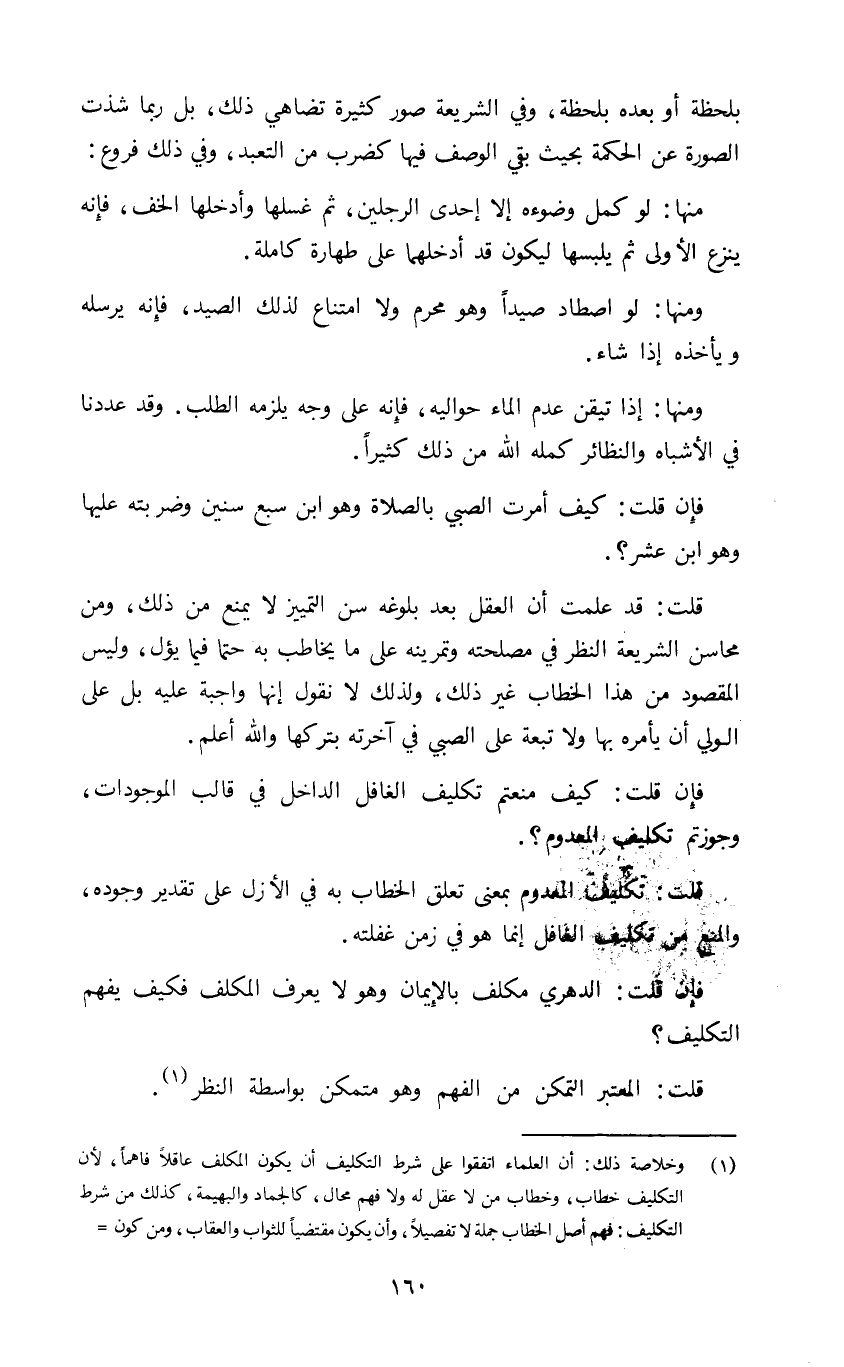 بلحظة أو بعده بلحظة، وفي الشريعة صور كثيرة تضاهي ذلك، بل ربما شذت
الصورة عن الحكمة بحيث بقي الوصف فيها كضرب من التعبد، وفي ذلك فروع:
منها: لو كمل وضوءه إلا إحدى الرجلين، ثم غسلها وأدخلها الخف، فإنه
ينزع الأولى ثم يلبسها ليكون قد أدخلهما على طهارة كاملة.
ومنها: لو اصطاد صيداً وهو محرم ولا امتناع لذلك الصيد، فإنه يرسله
ويأخذه إذا شاء.
ومنها: إذا تيقن عدم الماء حواليه، فإنه على وجه يلزمه الطلب. وقد عددنا
في الأشباه والنظائر كمله الله من ذلك كثيراً.
فإن قلت: كيف أمرت الصبي بالصلاة وهو ابن سبع سنين وضربته عليها
وهو ابن عشر؟.
قلت: قد علمت أن العقل بعد بلوغه سن التمييز لا يمنع من ذلك، ومن
محاسن الشريعة النظر في مصلحته وتمرينه على ما يخاطب به حتما فيما يؤل، وليس
المقصود من هذا الخطاب غير ذلك، ولذلك لا نقول إنها واجبة عليه بل على
الولي أن يأمره بها ولا تبعة على الصبي في آخرته بتركها والله أعلم.
فإن قلت: كيف منعتم تكليف الغافل الداخل في قالب الموجودات،
وجوزتم تكليف المعدوم؟.
قلت: تكليف المعدوم بمعنى تعلق الخطاب به في الأزل على تقدير وجوده،
والمنع من تكليف الغافل إنما هو في زمن غفلته.
فإن قلت: الدهري مكلف بالإيمان وهو لا يعرف المكلف فكيف يفهم
التكليف؟
قلت: المعتبر التمكن من الفهم وهو متمكن بواسطة النظر(١).
(١) وخلاصة ذلك: أن العلماء اتفقوا على شرط التكليف أن يكون المكلف عاقلاً فاهماً، لأن
التكليف خطاب، وخطاب من لا عقل له ولا فهم محال، كالجماد والبهيمة، كذلك من شرط
التكليف: فهم أصل الخطاب جملة لا تفصيلاً، وأن يكون مقتضياً للثواب والعقاب، ومن كون =
١٦٠